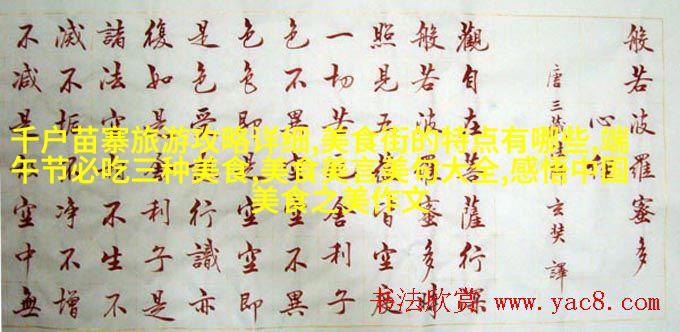 般若波羅蜜多
心經
唐三藏玄奘譯
觀自在菩薩行深
般若波羅蜜多時
照見五皆空度
一切苦舍利子
色不異空不異
色色即是空即
是色受行識亦
復如是利子是
諸法空不生不
滅不垢不淨不增
不減是空中無
千户苗寨旅游攻略详细,美食街的特点有哪些,端
午节必吃三种美食,美食美言美句大全,感悟中国
美食之美作文
书法欣赏 www.yac8.com